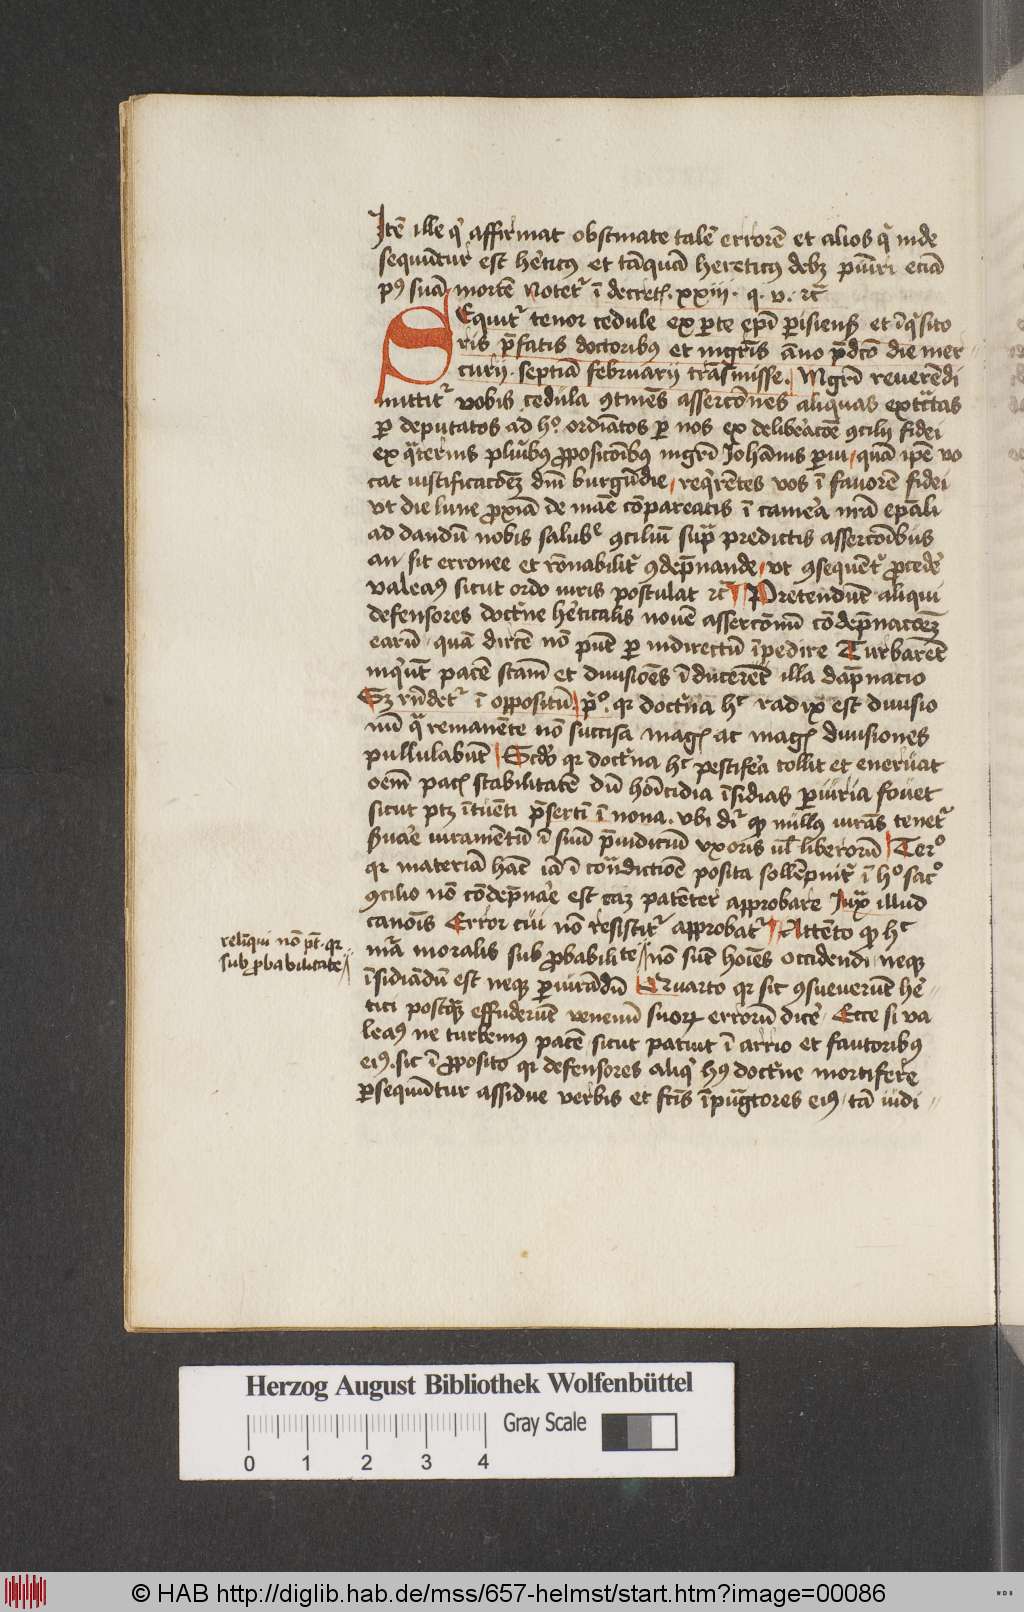 Itē ille qͥ affirmat obstinate talē errorē et alios qͥ inde
sequūtur est hͤeticꝰ et tāquā hereticꝰ debꝫ puīri eciā
pꝰ suā mortē Notetʳ ī decretꝭ. xxiii. q. v. ⁊c̄
SEquitʳ tenor cedule ex ꝑte epī ꝑisienß et īqͥsito
ris p̄fatis doctoribꝰ et mgrīs āno p̄dc̄o die mer⸗
curij. septīa februarij trāsmisse. Mgrī reuerēdi
mittitʳ vobis cedula ꝯtinēs assercōnes aliquas extͣctas
ꝑ deputatos ad hͦ. ordīatos ꝑ nos ex delibeͬacōe ꝯcilij fidei
ex qͣternis pluͥbꝰ ꝓposicōibꝰ mgrī Johānis ꝑui quā ipē vo
cat iustificacōeꝫ dnī burgūdie reqͥrētes vos ī fauorē fidei
vt die lune ꝓxīa de māe cōpareatis ī cameͬa nr̄a ep̄ali
ad dandū nobis salubͤ ꝯciliū supͣ predictis assercōibus
an sit erronee et rōnabilitͬ ꝯdēpnande vt ꝯsequētͬ ꝓcedeͬ
valeaꝰ sicut ordo iuris postulat ⁊c̄ Pretendūt aliqui
defensores doctͥne hͤeticalis nouē assercōnū cōdēpnacōeꝫ
earū quā dircē nō pn̄t ꝑ indirectū īpedire Turbarēt
inqͥūt pacē scām et diuisiōes ī ducerēt illa dāpnacio
Sꝫ rn̄detʳ ī oppositū pͦ. qꝛ doctͥna hͨ radix est diuisio
nū qͣ remanēte nō succisa magꝭ ac magꝭ diuisiones
pullulabūt Scd̄o qꝛ doctͥna hͨ pestifeͬa tollit et eneruat
oēm pacꝭ stabilitatē dū homīcidia īsidias ꝑiuria fouet
sicut ptꝫ ītuēti p̄sertī ī nona. vbi dͬ ꝙ nullꝰ iurās tenetʳ
ẜuaͬe iuramētū ī suū p̄iudiciū vxoris ul̄ liberorū Terͦ
qꝛ materiā hāc iā ī cōtͣdictiōe posita sollēpnitͬ ī hͦ sacͦ
ꝯcilio nō cōdēpnaͬe est eaꝫ patēter approbare Juxͣ illud
canoīs Error cui nō resistitʳ approbatʳ Attēto ꝙ hͨ
mͣ moralis sub ꝓbabilite nō sūt hoīes occidendi neqꝫ
īsidiādū est neqꝫ ꝑiurādū Quarto qꝛ sic ꝯsueuerūt hͤe⸗
tici postqͣꝫ effuderūt venenū suoꝝ errorū diceͬ Ecce si va
leaꝰ ne turbemꝰ pacē sicut patuit ī arrio et fautoribꝰ
eiꝰ. sic ī ꝓposito qꝛ defensores aliqͥ hꝰ doctͥne mortifere
ꝑsequūtur assidue verbis et fc̄is īpugͣtores eiꝰ tā iudi⸗
reliqui nō pt̄ qꝛ
sub ꝓbabilitate
Herzog August Bibliothek Wolfenbüttel
Gray Scale
0 1 2 3 4
© HAB http://diglib.hab.de/mss/657-helmst/start.htm?image=00086